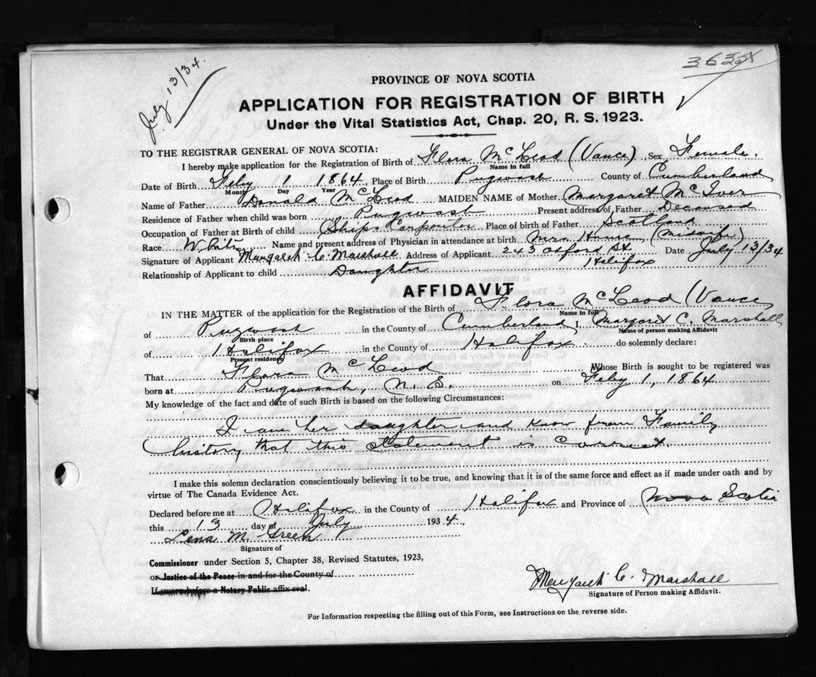 July 13/34.
PROVINCE OF NOVA SCOTIA
APPLICATION FOR REGISTRATION OF BIRTH
Under the Vital Statistics Act, Chap. 20, R. S. 1923.
TO THE REGISTRAR GENERAL OF NOVA SCOTIA:
I hereby make application for the Registration of Birth of Flora McLeod (Vance) Sex Female.
Name in full
Date of Birth Feby 1 1864 Place of Birth Pugwash County of Cumberland
Month Day Year
Name of Father Donald McLeod MAIDEN NAME of Mother Margaret McIver
Residence of Father when child was born Pugwash Present address of Father Deceased
Occupation of Father at Birth of child Ship Carpenter Place of birth of Father Scotland
Race White Name and present address of Physician in attendance at birth Mrs (Midwife)
Signature of Applicant Margaret C. Marshall Address of Applicant 243 St Date July 13/34
Relationship of Applicant to child Daughter Halifax
AFFIDAVIT
IN THE MATTER of the application for the Registration of the Birth of Flora McLeod (Vance
Name in full
of Pugwash in the County of Cumberland I, Margaret C. Marshall
Birth place Name of person making Affidavit
of Halifax in the County of Halifax do solemnly declare:
Present residence
That Flora McLeod Whose Birth is sought to be registered was
born at Pugwash, N. S. on Feby 1, 1864
My knowledge of the fact and date of such Birth is based on the following Circumstances:
I am her daughter and know from Family
history that this statement is correct.
I make this solemn declaration conscientiously believing it to be true, and knowing that it is of the same force and effect as if made under oath and by
virtue of The Canada Evidence Act.
Declared before me at Halifax in the County of Halifax and Province of Nova Scotia
this 13 day of July 1934.
Lena M. Green
Signature of
Commissioner under Section 5, Chapter 38, Revised Statutes, 1923,
or Justice of the Peace in and for the County of
Notary Public affix seal.
Margaret C. Marshall
Signature of Person making Affidavit.
For Information respecting the filling out of this Form, see Instructions on the reverse side.